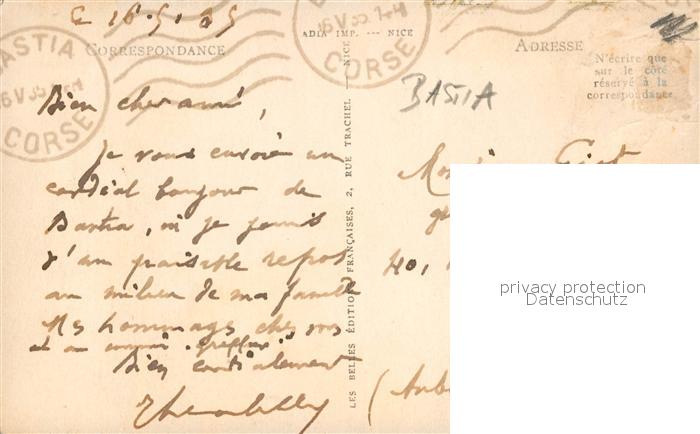 Le 16.5.35
BASTIA
16 V 35
CORSE
16 V 35
CORSE
CORRESPONDANCE
ADIA IMP. --- NICE
ADRESSE
N'écrire que
sur le côté
réservé à la
correspondance
BASTIA
Bien cher ami,
Je vous envoie un
cordial bonjour de
Bastia, où je jouis
d'un paisible repos
au milieu de ma famille
Mes hommages chez vous
et au commis
Bien cordialement
LES BELLES ÉDITIONS FRANÇAISES, 2, RUE TRACHEL — NICE
40,
(Aub
privacy protection
Datenschutz